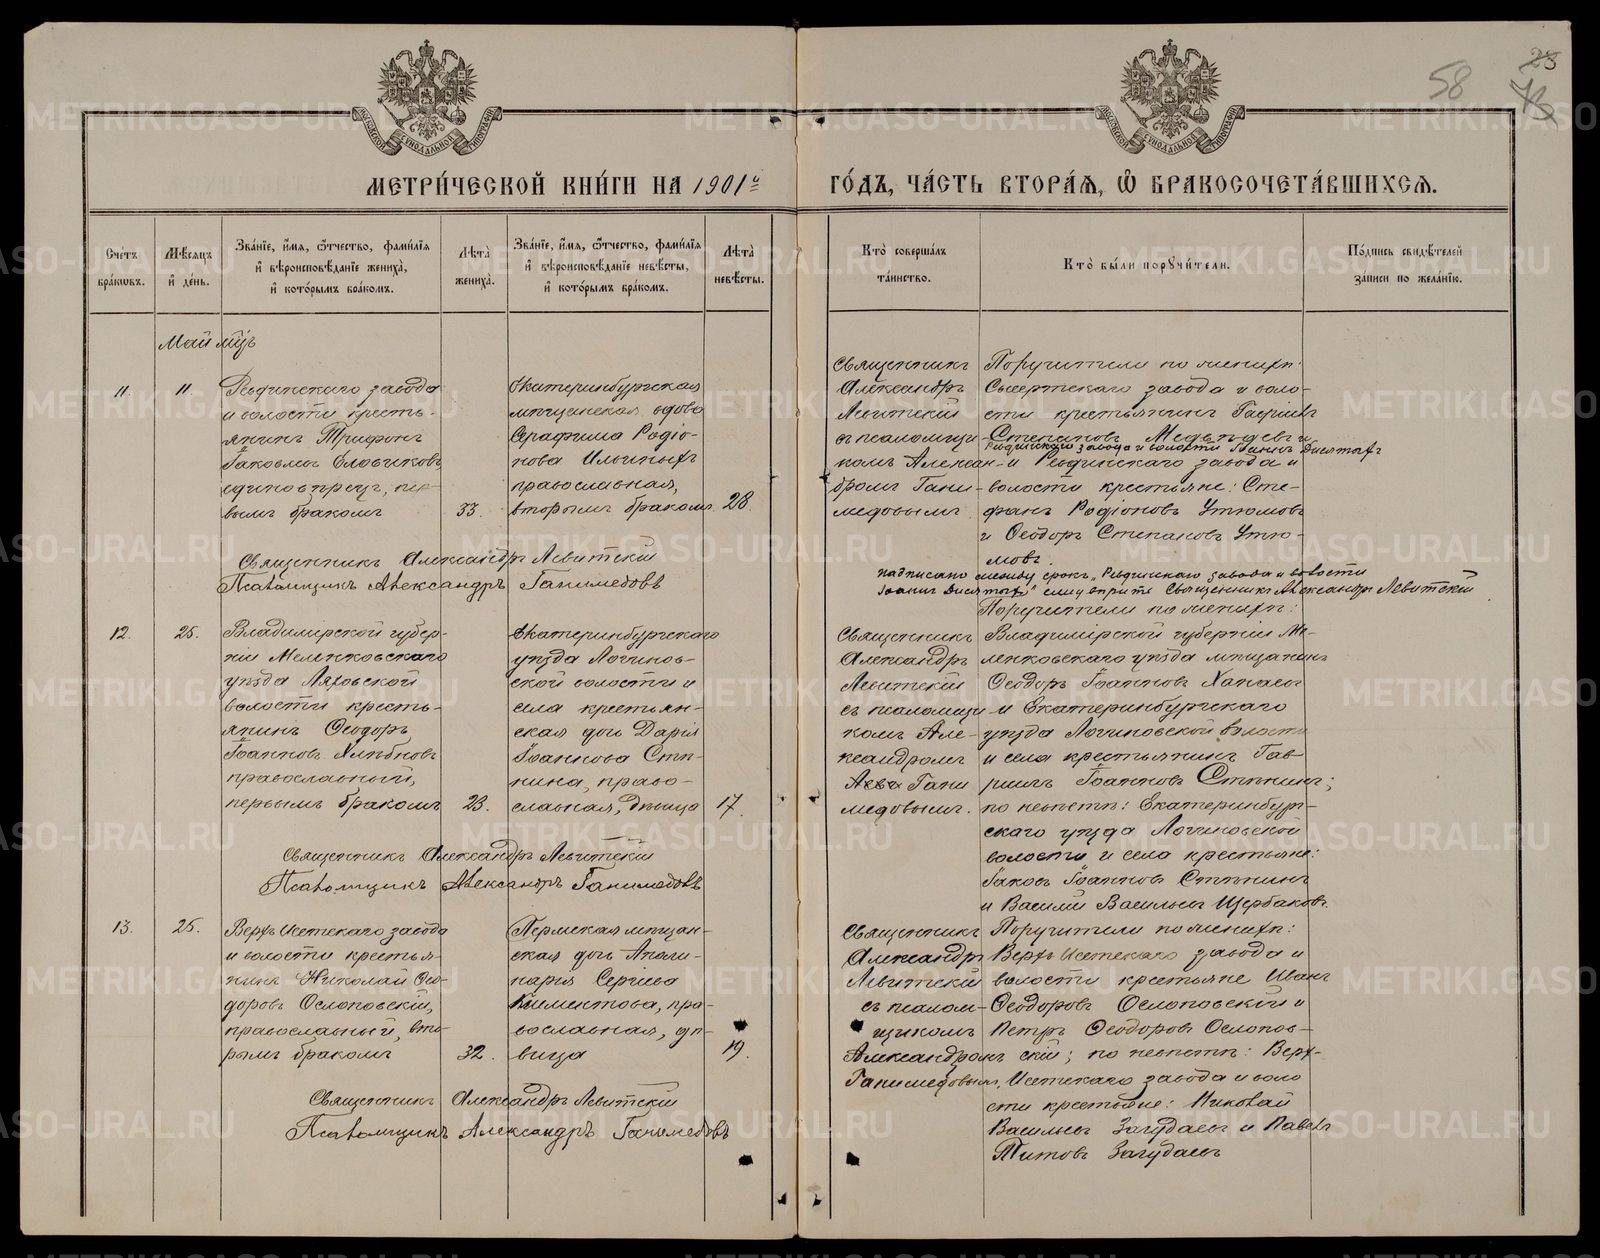 58
23
МЕТРИ́ЧЕСКОЙ КНИ́ГИ НА 1901й
ГО́ДЪ, ЧА́СТЬ ВТОРА́Я, Ѡ БРАКОСОЧЕТА́ВШИХСЯ.
Сче́тъ бра́ковъ.
Мѣ́сяцъ и҆ де́нь.
Зва́нїе, и҆́мя, ѻ҆́тчество, фами́лїя
и҆ вѣроисповѣ́данїе жениха̀,
и҆ кото́рымъ бра́комъ.
Лѣта̀ жениха̀.
Зва́нїе, и҆́мя, ѻ҆́тчество, фами́лїя
и҆ вѣроисповѣ́данїе невѣ́сты,
и҆ кото́рымъ бра́комъ.
Лѣта̀ невѣ́сты.
Кто̀ соверша́лъ та́инство.
Кто̀ бы́ли порꙋчи́тели.
По́дпись свидѣ́телей за́писи по жела́нїю.
Май мц̃ъ
11.
11.
Ревдинскаго завода
и волости кресть-
янинъ Трифонъ
Іаковлевъ Еловиковъ
единовѣрецъ, пер-
вымъ бракомъ
33.
Екатеринбургская
мѣщанская вдова
Серафима Родіо-
нова Ильиныхъ
православная,
вторымъ бракомъ
28.
Священникъ
Александръ
Левитскій
съ псаломщи-
комъ Алексан-
дромъ Гани-
медовымъ
Поручители по женихѣ:
Сысертскаго завода и воло-
сти крестьянинъ Гавріилъ
Степановъ Медвѣдевъ и
Ревдинскаго завода и волости Іоаннъ Дисятовъ
и Ревдинскаго завода и
волости крестьяне: Сте-
фанъ Родіоновъ Утюмовъ
и Ѳеодоръ Степановъ Утю-
мовъ.
Священникъ Александръ Левитскій
Псаломщикъ Александръ Ганимедовъ
надписано между срокъ „Ревдинскаго завода и волости
Священникъ Александръ Левитскій
12.
25.
Владимірской губер-
ніи Меленковскаго
уѣзда Ляховской
волости кресть-
янинъ Ѳеодоръ
Іоанновъ Хлѣбновъ
православный,
первымъ бракомъ
23.
Екатеринбургскаго
уѣзда Логинов-
ской волости и
села крестьян-
ская дочь Дарія
Іоаннова Стѣ-
нина, право-
славная, дѣвица
17.
Священникъ
Александръ
Левитскій
съ псаломщи-
комъ Але-
ксандромъ
Гани
медовымъ.
Поручители по женихѣ:
Владимірской губерніи Ме-
ленковскаго уѣзда мѣщанинъ
Ѳеодоръ Іоанновъ
и Екатеринбургскаго
уѣзда Логиновской волости
и села крестьянинъ Гав-
риилъ Іоанновъ Стѣнинъ;
по невѣстѣ: Екатеринбург-
скаго уѣзда Логиновской
волости и села крестьяне:
Іаковъ Іоанновъ Стѣнинъ
и Василій Васильевъ Щербаковъ.
Священникъ Александръ Левитскій
Псаломщикъ Александръ Ганимедовъ
13.
25.
Верхъ Исетскаго завода
и волости крестья-
нинъ Николай Ѳео-
доровъ Ослоповскій,
православный, вто-
рымъ бракомъ
32.
Пермская мѣщан-
ская дочь Аполи-
нарія Сергіева
Климентова, пра-
вославная, дѣ-
вица
19.
Священникъ
Александръ
Левитскій
съ псалом-
щикомъ
Александромъ
Ганимедовымъ.
Поручители по женихѣ:
Верхъ Исетскаго завода и
волости крестьяне Иванъ
Ѳеодоровъ Ослоповскій и
Петръ Ѳеодоровъ Ослопов-
скій; по невѣстѣ: Верх-
Исетскаго завода и воло
сти крестьяне: Николай
Васильевъ Загудаевъ и Павелъ
Титовъ Загудаевъ
Священникъ Александръ Левитскій
Псаломщикъ Александръ Ганимедовъ
METRIKI.GASO-URAL.RU